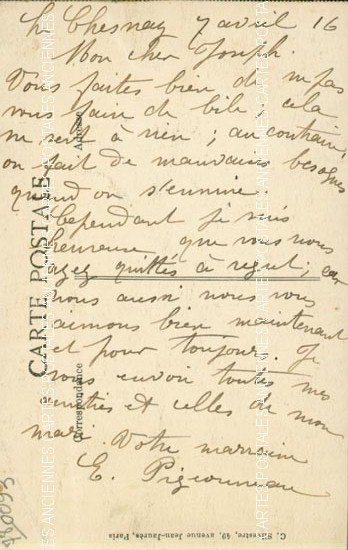 Le Chesnay 7 avril 16
Mon cher Joseph.
Vous faites bien de ne pas
vous faire de bile, cela
ne sert à rien ; au contraire,
on fait de mauvaises besognes
quand on s'ennuie.
Cependant je suis
heureuse que vous nous
ayez quittés à regret ; car
nous aussi nous vous
aimons bien maintenant
et pour toujours. Je
vous envoie toutes mes
amitiés et celles de mon
mari. Votre marraine
E. Pigeonneau
CARTE POSTALE
Correspondance
Adresse
C. Silvestre, 49, avenue Jean-Jaurès, Paris
CARTES POSTALES ANCIENNES